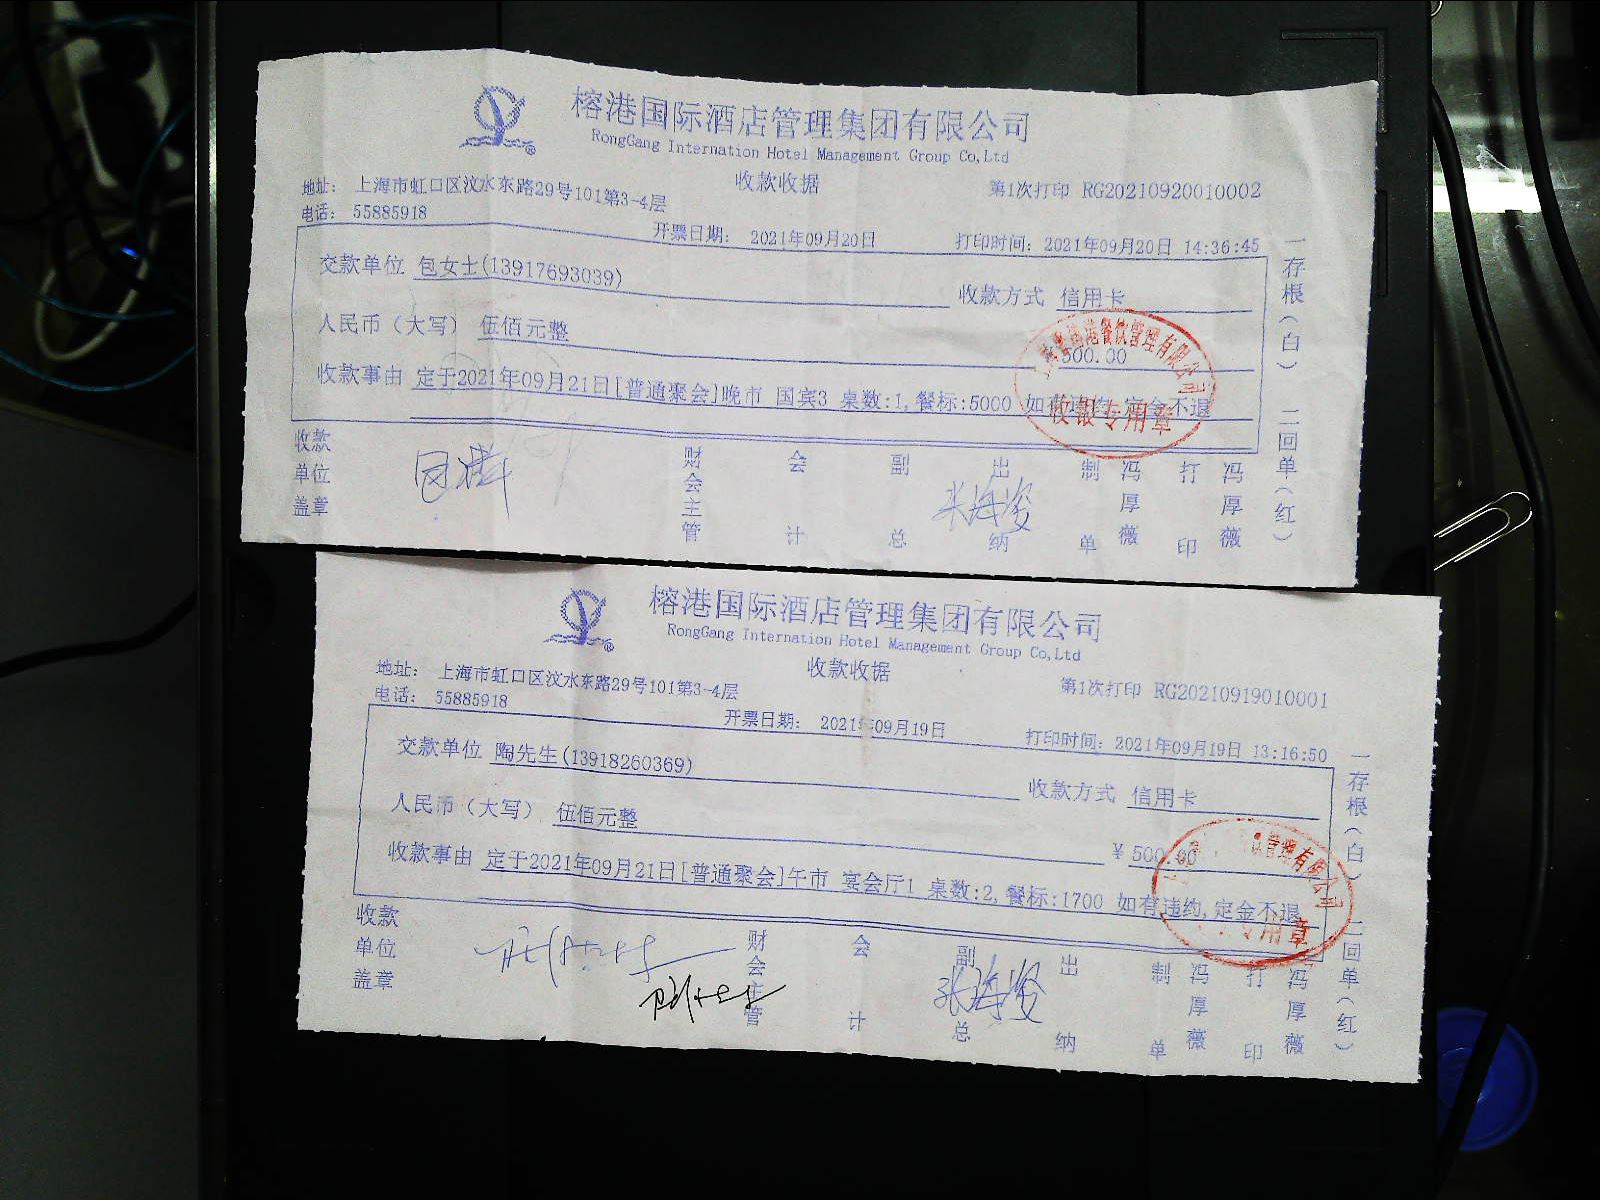 榕港国际酒店管理集团有限公司
RongGang Internation Hotel Management Group Co,Ltd
收款收据
地址： 上海市虹口区汶水东路29号101第3-4层
第1次打印 RG20210920010002
电话： 55885918
开票日期： 2021年09月20日 打印时间：2021年09月20日 14:36:45
交款单位 包女士(13917693039) 收款方式 信用卡
人民币（大写） 伍佰元整 500.00
收款事由 定于2021年09月21日[普通聚会]晚市 国宾3 桌数:1,餐标:5000 如有违约,定金不退
餐饮管理有限公司
收银专用章
收款单位盖章 财会主管 会计 副总 出纳 张海滨 制单 冯厚薇 打印 冯厚薇
一存根（白） 二回单（红）
榕港国际酒店管理集团有限公司
RongGang Internation Hotel Management Group Co,Ltd
收款收据
地址： 上海市虹口区汶水东路29号101第3-4层
第1次打印 RG20210919010001
电话： 55885918
开票日期： 2021年09月19日 打印时间：2021年09月19日 13:16:50
交款单位 陶先生(13918260369) 收款方式 信用卡
人民币（大写） 伍佰元整 ¥500.00
收款事由 定于2021年09月21日[普通聚会]午市 宴会厅1 桌数:2,餐标:1700 如有违约,定金不退
管理有限公司
专用章
收款单位盖章 财会主管 会计 副总 出纳 制单 冯厚薇 打印 冯厚薇
一存根（白） 二回单（红）